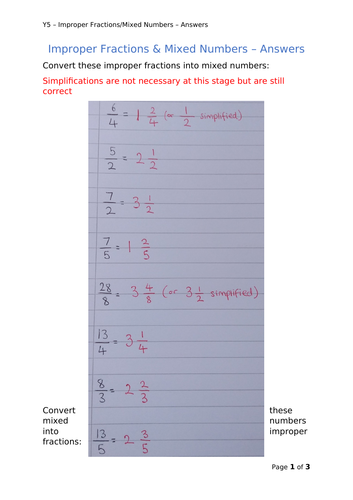 Y5 – Improper Fractions/Mixed Numbers – Answers
Improper Fractions & Mixed Numbers – Answers
Convert these improper fractions into mixed numbers:
Simplifications are not necessary at this stage but are still
correct
6/4 = 1 2/4 (or 1/2 simplified)
5/2 = 2 1/2
7/2 = 3 1/2
7/5 = 1 2/5
28/8 = 3 4/8 (or 3 1/2 simplified)
13/4 = 3 1/4
8/3 = 2 2/3
13/5 = 2 3/5
Convert these
mixed numbers
into improper
fractions:
Page 1 of 3